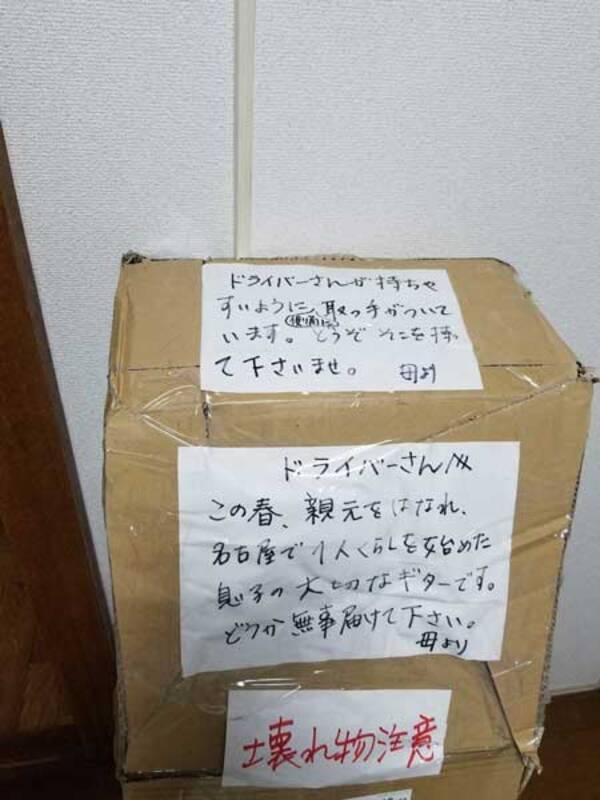 ドライバーさんが持ちや
すいように、取っ手がついて
側面に
います。どうぞそこを持っ
て下さいませ。 母より
ドライバーさんへ
この春、親元をはなれ、
名古屋で1人ぐらしを始めた
息子の大切なギターです。
どうか無事届けて下さい。
母より
壊れ物注意